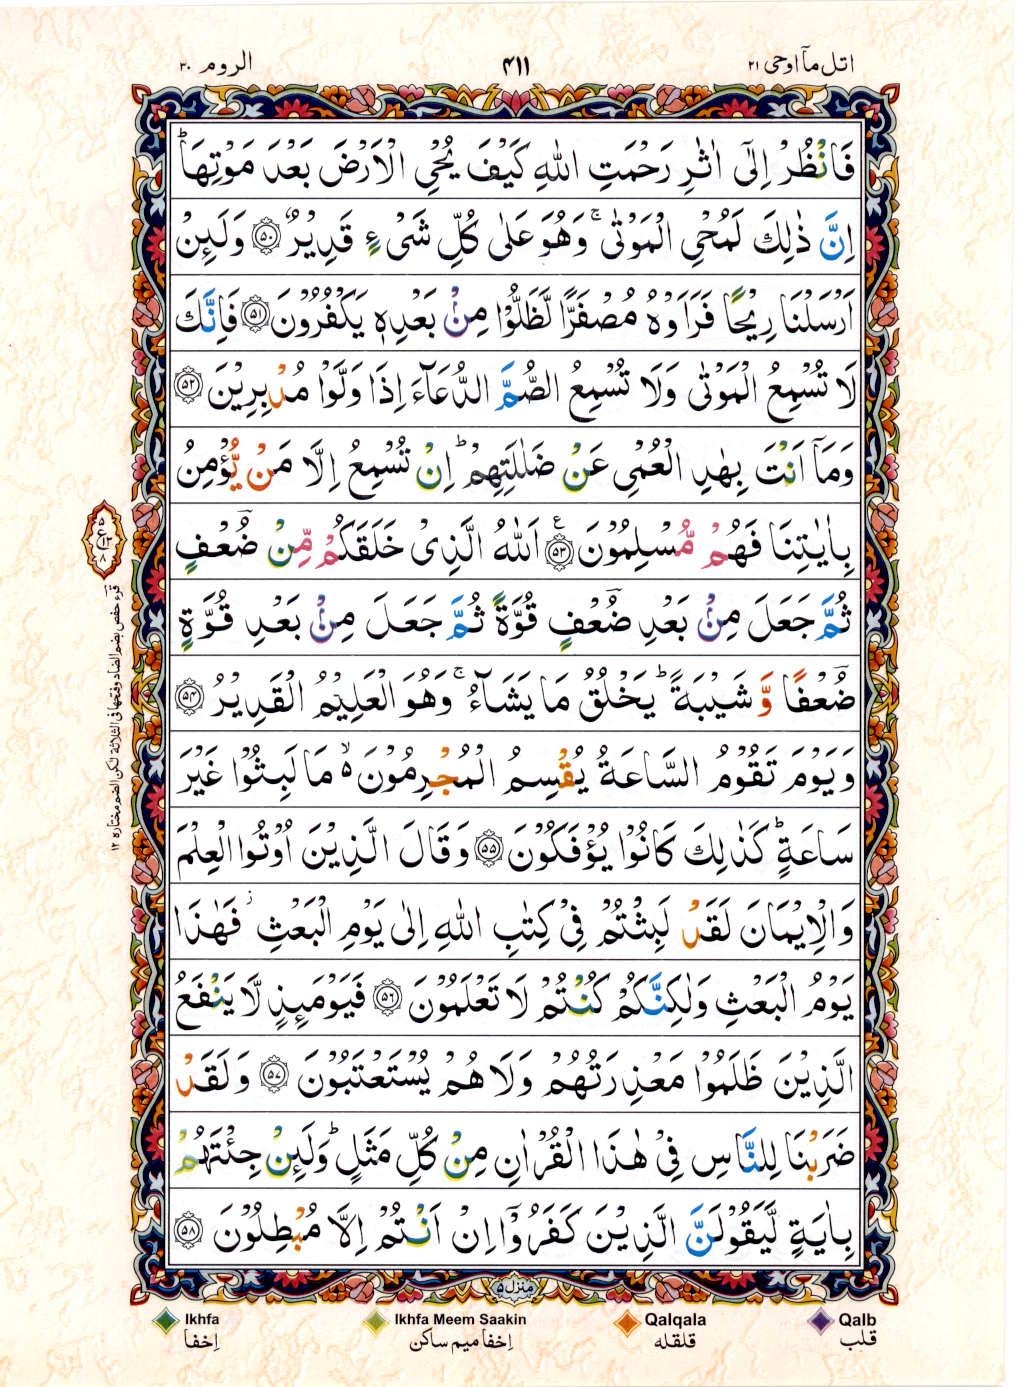 اتل مآ اوحی ۲۱
۴۱۱
الروم ۳۰
فَانْظُرْ اِلٰۤى اٰثٰرِ رَحْمَتِ اللّٰهِ كَيْفَ يُحْیِ الْاَرْضَ بَعْدَ مَوْتِهَا ؕ
اِنَّ ذٰلِكَ لَمُحْیِ الْمَوْتٰى ۚ وَهُوَ عَلٰى كُلِّ شَیْءٍ قَدِيْرٌ ۵۰ وَلَىِٕنْ
اَرْسَلْنَا رِيْحًا فَرَاَوْهُ مُصْفَرًّا لَّظَلُّوْا مِنْۢ بَعْدِهٖ يَكْفُرُوْنَ ۵۱ فَاِنَّكَ
لَا تُسْمِعُ الْمَوْتٰى وَلَا تُسْمِعُ الصُّمَّ الدُّعَآءَ اِذَا وَلَّوْا مُدْبِرِيْنَ ۵۲
وَمَاۤ اَنْتَ بِهٰدِ الْعُمْیِ عَنْ ضَلٰلَتِهِمْ ؕ اِنْ تُسْمِعُ اِلَّا مَنْ يُّؤْمِنُ
بِاٰيٰتِنَا فَهُمْ مُّسْلِمُوْنَ ۵۳ ع اَللّٰهُ الَّذِیْ خَلَقَكُمْ مِّنْ ضُؔعْفٍ
ثُمَّ جَعَلَ مِنْۢ بَعْدِ ضُؔعْفٍ قُوَّةً ثُمَّ جَعَلَ مِنْۢ بَعْدِ قُوَّةٍ
ضُؔعْفًا وَّ شَيْبَةً ؕ يَخْلُقُ مَا يَشَآءُ ۚ وَهُوَ الْعَلِيْمُ الْقَدِيْرُ ۵۴
وَيَوْمَ تَقُوْمُ السَّاعَةُ يُقْسِمُ الْمُجْرِمُوْنَ ۙ۬ مَا لَبِثُوْا غَيْرَ
سَاعَةٍ ؕ كَذٰلِكَ كَانُوْا يُؤْفَكُوْنَ ۵۵ وَقَالَ الَّذِيْنَ اُوْتُوا الْعِلْمَ
وَالْاِيْمَانَ لَقَدْ لَبِثْتُمْ فِیْ كِتٰبِ اللّٰهِ اِلٰى يَوْمِ الْبَعْثِ ؗ فَهٰذَا
يَوْمُ الْبَعْثِ وَلٰكِنَّكُمْ كُنْتُمْ لَا تَعْلَمُوْنَ ۵۶ فَيَوْمَىِٕذٍ لَّا يَنْفَعُ
الَّذِيْنَ ظَلَمُوْا مَعْذِرَتُهُمْ وَلَا هُمْ يُسْتَعْتَبُوْنَ ۵۷ وَلَقَدْ
ضَرَبْنَا لِلنَّاسِ فِیْ هٰذَا الْقُرْاٰنِ مِنْ كُلِّ مَثَلٍ ؕ وَلَىِٕنْ جِئْتَهُمْ
بِاٰيَةٍ لَّيَقُوْلَنَّ الَّذِيْنَ كَفَرُوْۤا اِنْ اَنْتُمْ اِلَّا مُبْطِلُوْنَ ۵۸
منزل ۵
قرء حفص بضم الضاد وفتحها فی الثلاثة لکن الضم مختاره ۱۲
Ikhfa
Ikhfa Meem Saakin
Qalqala
Qalb
اِخفا
اِخفا میم ساکن
قلقله
قلب